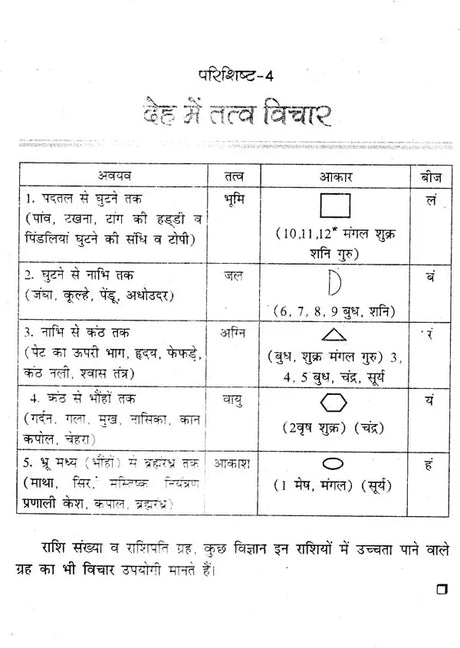 परिशिष्ट-4
देह में तत्व विचार
अवयव तत्व आकार बीज
1. पदतल से घुटने तक भूमि लं
(पांव, टखना, टांग की हड्डी व (10,11,12* मंगल शुक्र
पिंडलियां घुटने की संधि व टोपी) शनि गुरु)
2. घुटने से नाभि तक जल बं
(जंघा, कूल्हे, पेंडू, अधोउदर) (6, 7, 8, 9 बुध, शनि)
3. नाभि से कंठ तक अग्नि रं
(पेट का ऊपरी भाग, हृदय, फेफड़े, (बुध, शुक्र मंगल गुरु) 3,
कंठ नली, श्वास तंत्र) 4, 5 बुध, चंद्र, सूर्य
4. कंठ से भौंहों तक वायु यं
(गर्दन, गला, मुख, नासिका, कान (2वृष शुक्र) (चंद्र)
कपोल, चेहरा)
5. भ्रू मध्य (भौंहों) से ब्रह्मरंध्र तक आकाश हं
(माथा, सिर, मस्तिष्क नियंत्रण (1 मेष, मंगल) (सूर्य)
प्रणाली केश, कपाल, ब्रह्मरंध्र)
राशि संख्या व राशिपति ग्रह, कुछ विज्ञान इन राशियों में उच्चता पाने वाले
ग्रह का भी विचार उपयोगी मानते हैं।